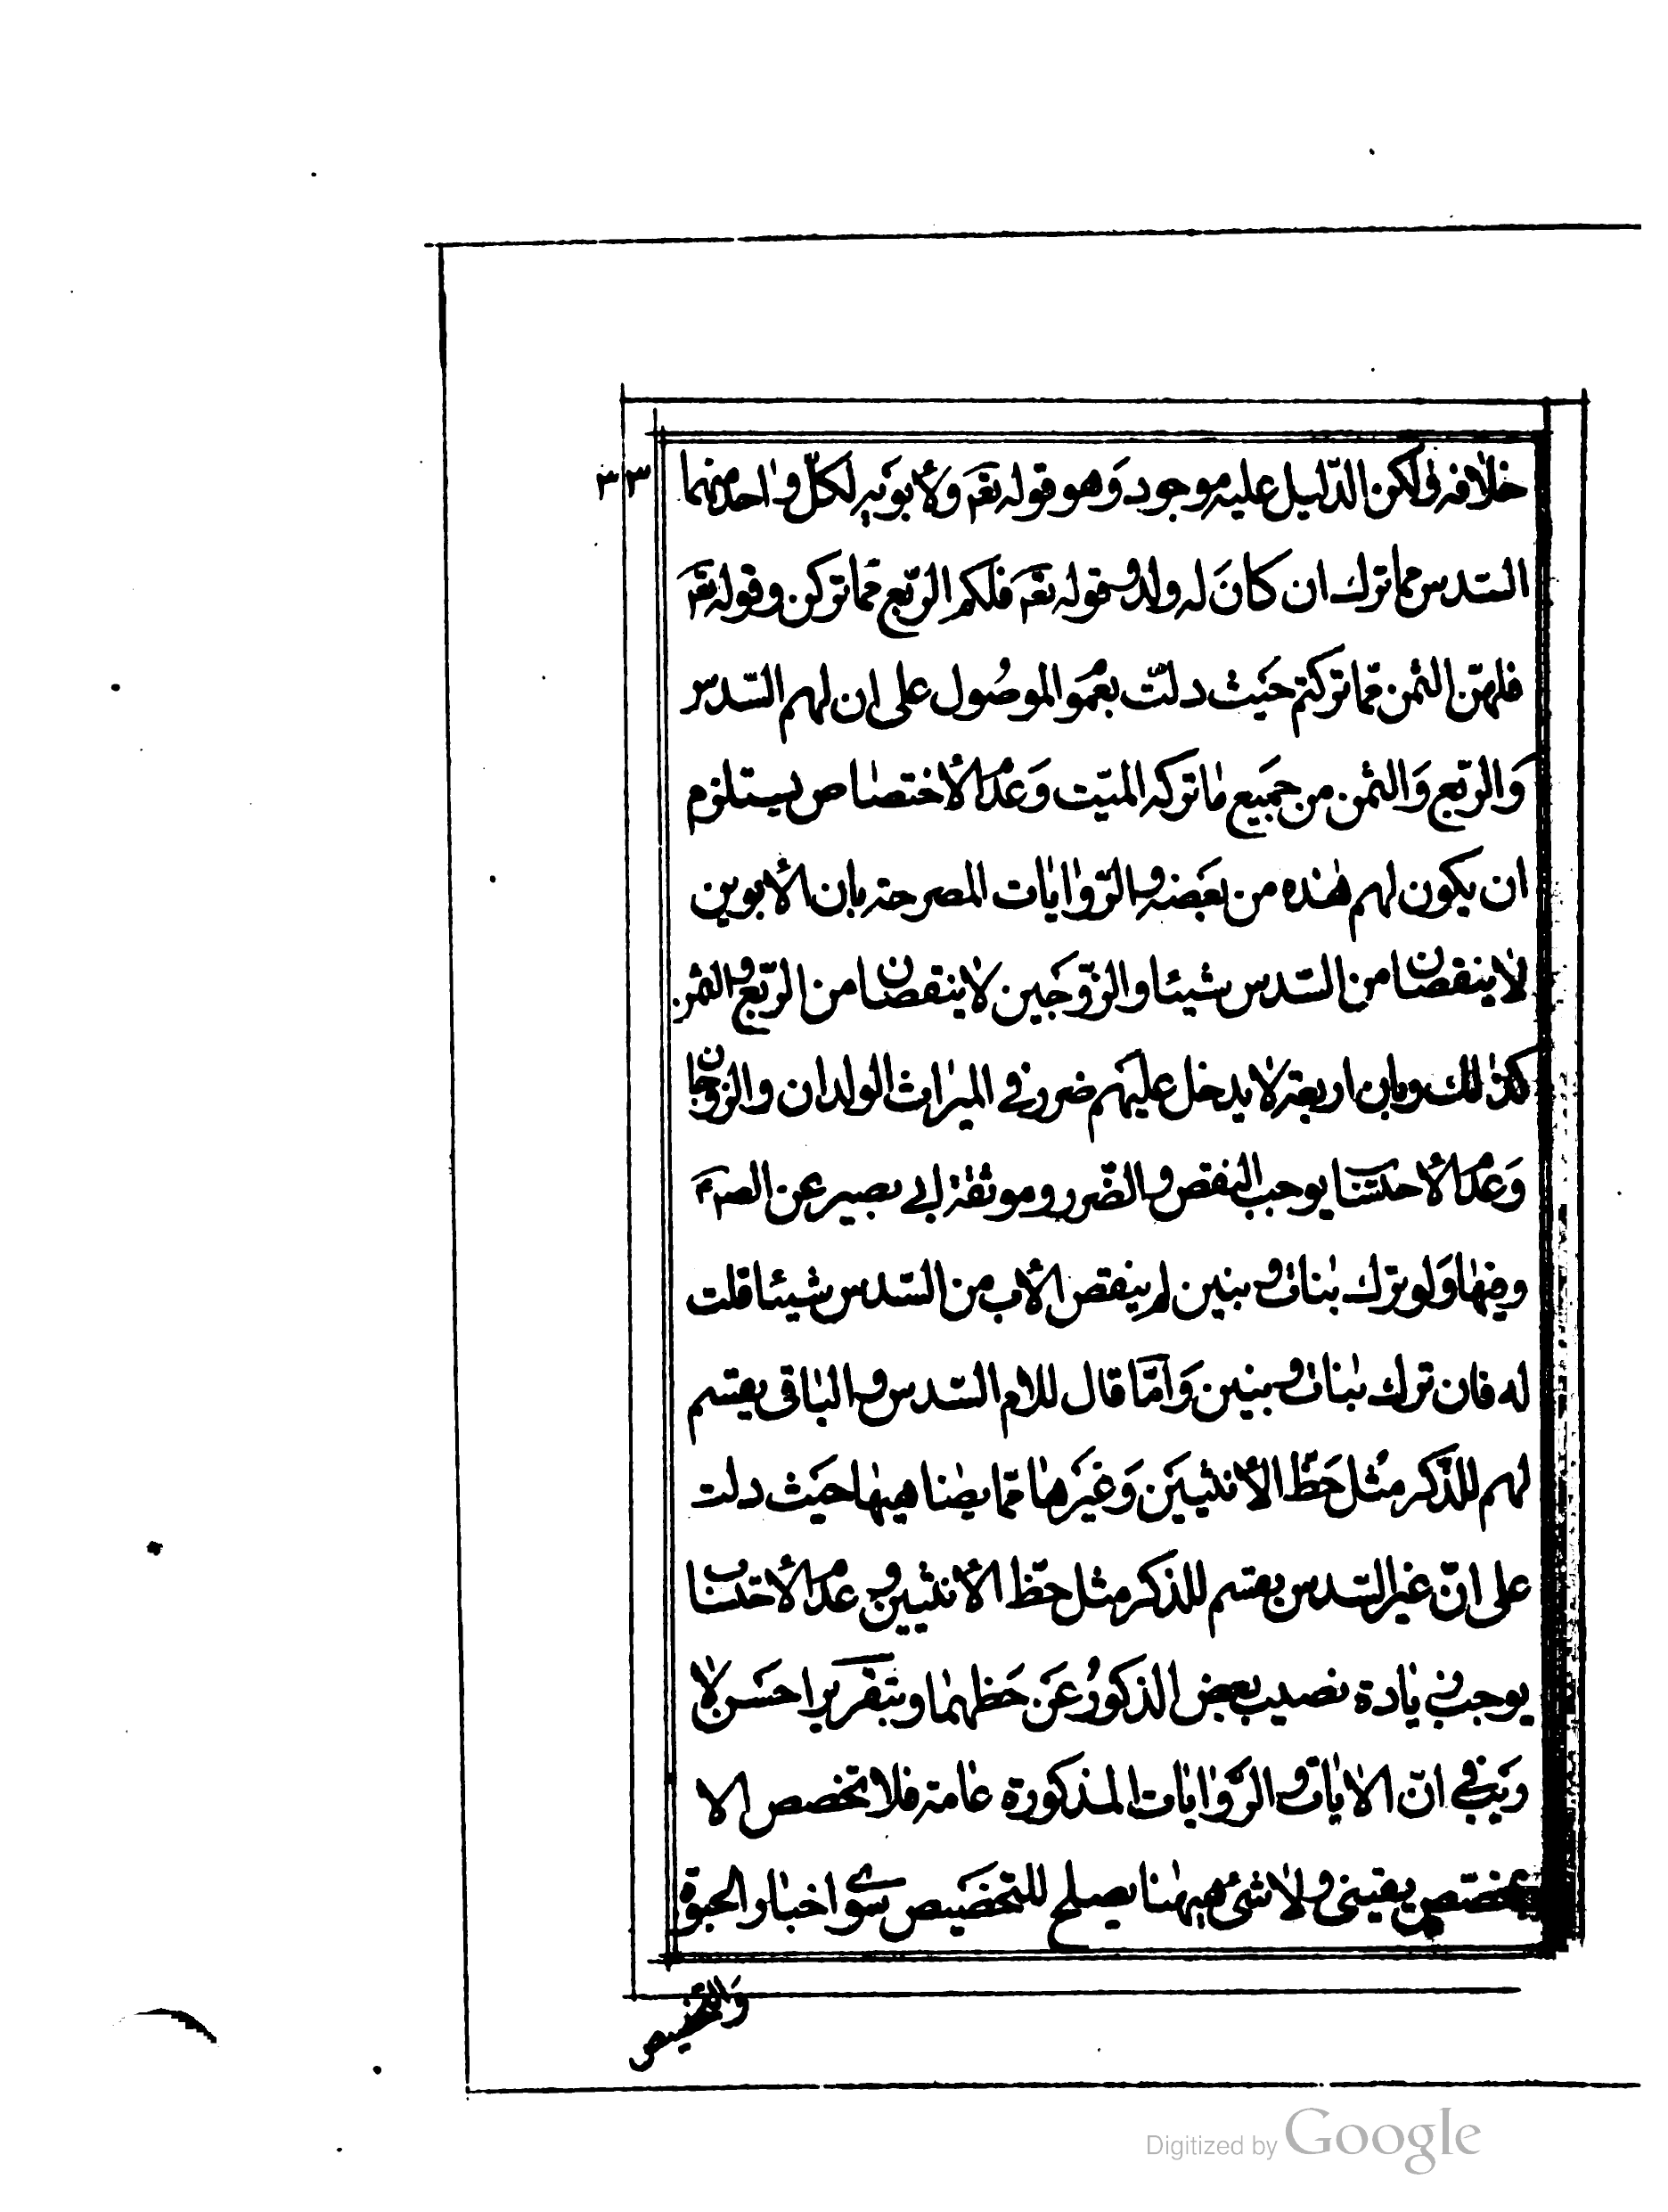 ٣٣
خلافه ولكن الدّليل عليه موجود وَهو قوله تعَم ولأبوَيه لكلّ واحد منهما
السّدس مما ترك ان كانَ له ولد وقوله تعَم فلكم الرّبع ممّا تركن وقوله تعَم
فلهنّ الثمن ممّا تركتم حيَث دلّت بعُموم الموصُول على ان لهم السّدس
وَالربّع وَالثمن من جمَيع ماتركه الميّت وَعدم الأختصاص يستلزم
ان يكون لهم هذه من بعَضه والرّوايات المصرحة بان الأبوين
لاينقصان من السّدس شيئا والزّوجَين لاينقصان من الرّبع والثمن
كذلك وبان اربعة لايدخل عليهَم ضرر في الميراث الوالدان والزّوجان
وَعدم الأحتسا يوجب النقص والضّرر وموثقة ابي بصير عن الص‌َم
وفيها وَلو ترك بنات وبنين لم ينقص الأب من السّدس شيئا قلت
له فان ترك بنات وبنين وَامّا قال للام السّدس والباقى يقسم
لهم للذّكر مثل حَظّ الأنثيَين وَغيَرها ممّا يضاهيها حيَث دلت
على انّ غير السّدس يقسم للذكر مثل حظّ الأنثيين وعدم الأحتساب
يوجب زيادة نصيب بعض الذكورُ عَن حَظهما وبتقرير احسَن لا
ريَب في انّ الايات والرَّوايات المذكورة عامة فلا تخصص الا
بمخصّص يقينى ولاشئ هيهنا يصلح للتخصَيص سوى اخبار الحبوة
وَالتخصيص
Digitized by Google